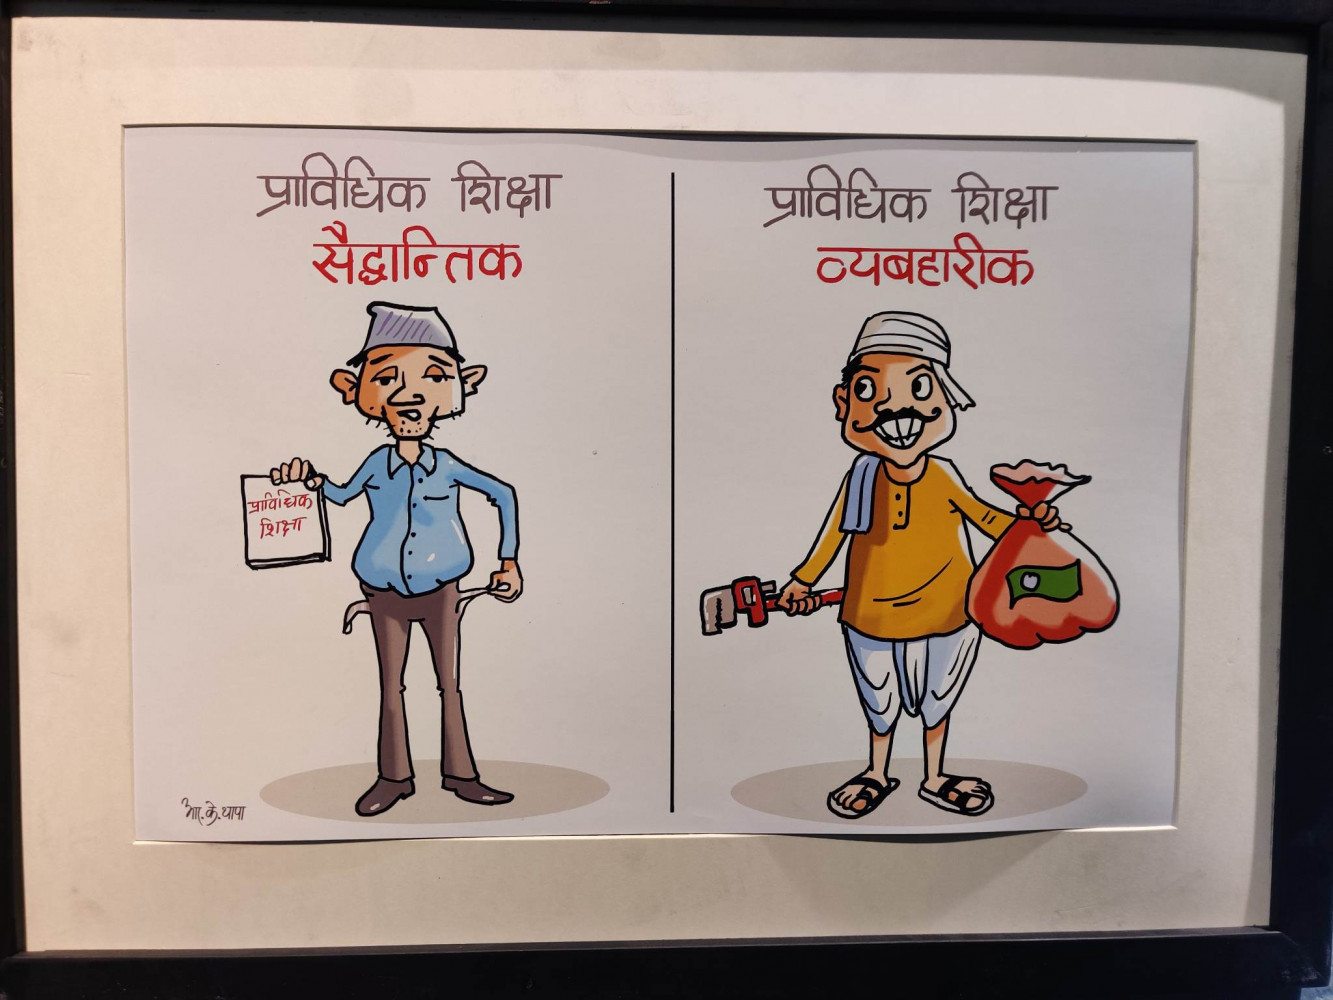 प्राविधिक शिक्षा
सैद्धान्तिक
प्राविधिक
शिक्षा
आर.के.थापा
प्राविधिक शिक्षा
व्यबहारीक